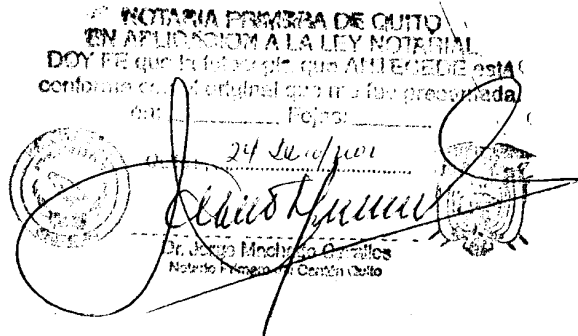 NOTARIA PRIMERA DE QUITO
EN APLICACION A LA LEY NOTARIAL
DOY FE que la fotocopia que ANTECEDE está
conforme con el original que me fue presentada.
en: Fojas:
24
Dr. Jorge Machado Cevallos
Notario Primero del Cantón Quito